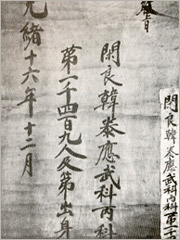 閑良韓泰應武科丙科
第一千四百九人及第出身
光緒十六年十二月
閑良韓泰應武科丙科第一千